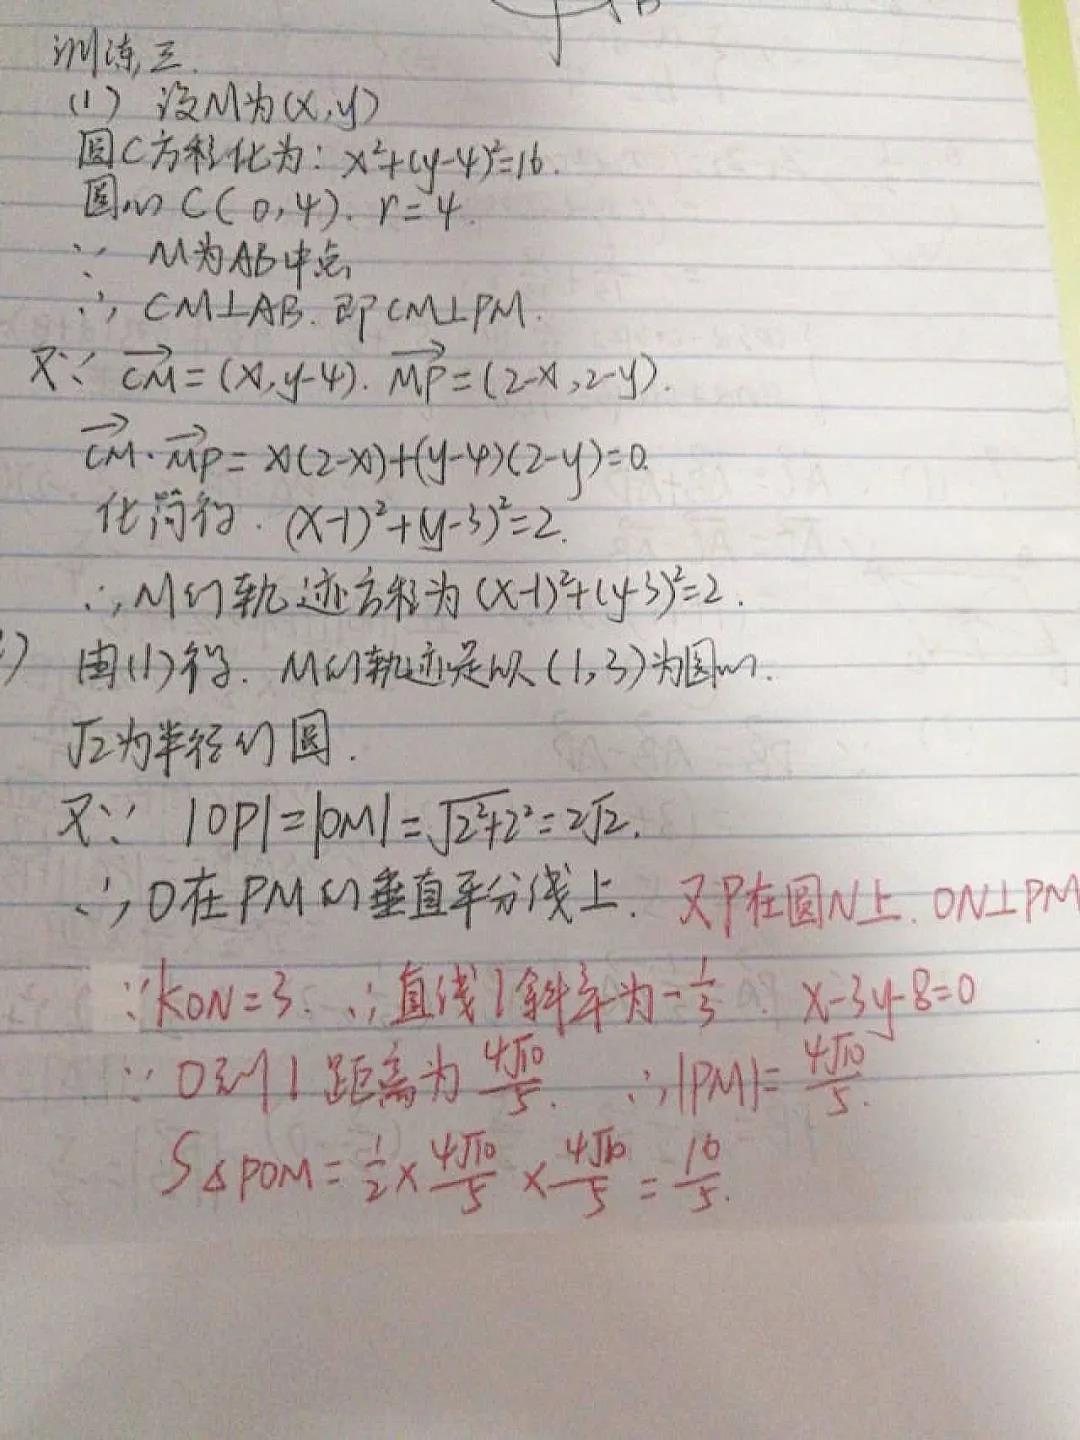 训练三.
(1) 设M为(x,y)
圆C方程化为: x²+(y-4)²=16.
圆心C(0,4). r=4.
∵ M为AB中点
∴ CM⊥AB. 即CM⊥PM.
又∵ \overrightarrow{CM}=(x,y-4). \overrightarrow{MP}=(2-x,2-y).
\overrightarrow{CM}·\overrightarrow{MP}=x(2-x)+(y-4)(2-y)=0.
化简得. (x-1)²+(y-3)²=2.
∴ M的轨迹方程为(x-1)²+(y-3)²=2.
) 由(1)得. M的轨迹是以(1,3)为圆心.
√2为半径的圆.
又∵ |OP|=|OM|=√(2²+2²)=2√2.
∴ O在PM的垂直平分线上. 又P在圆N上. ON⊥PM
∵kON=3. ∴直线l斜率为-1/3. x-3y-8=0
∵ O到l距离为4√10/5. ∴|PM|=4√10/5.
S△POM=1/2×4√10/5×4√10/5=16/5.